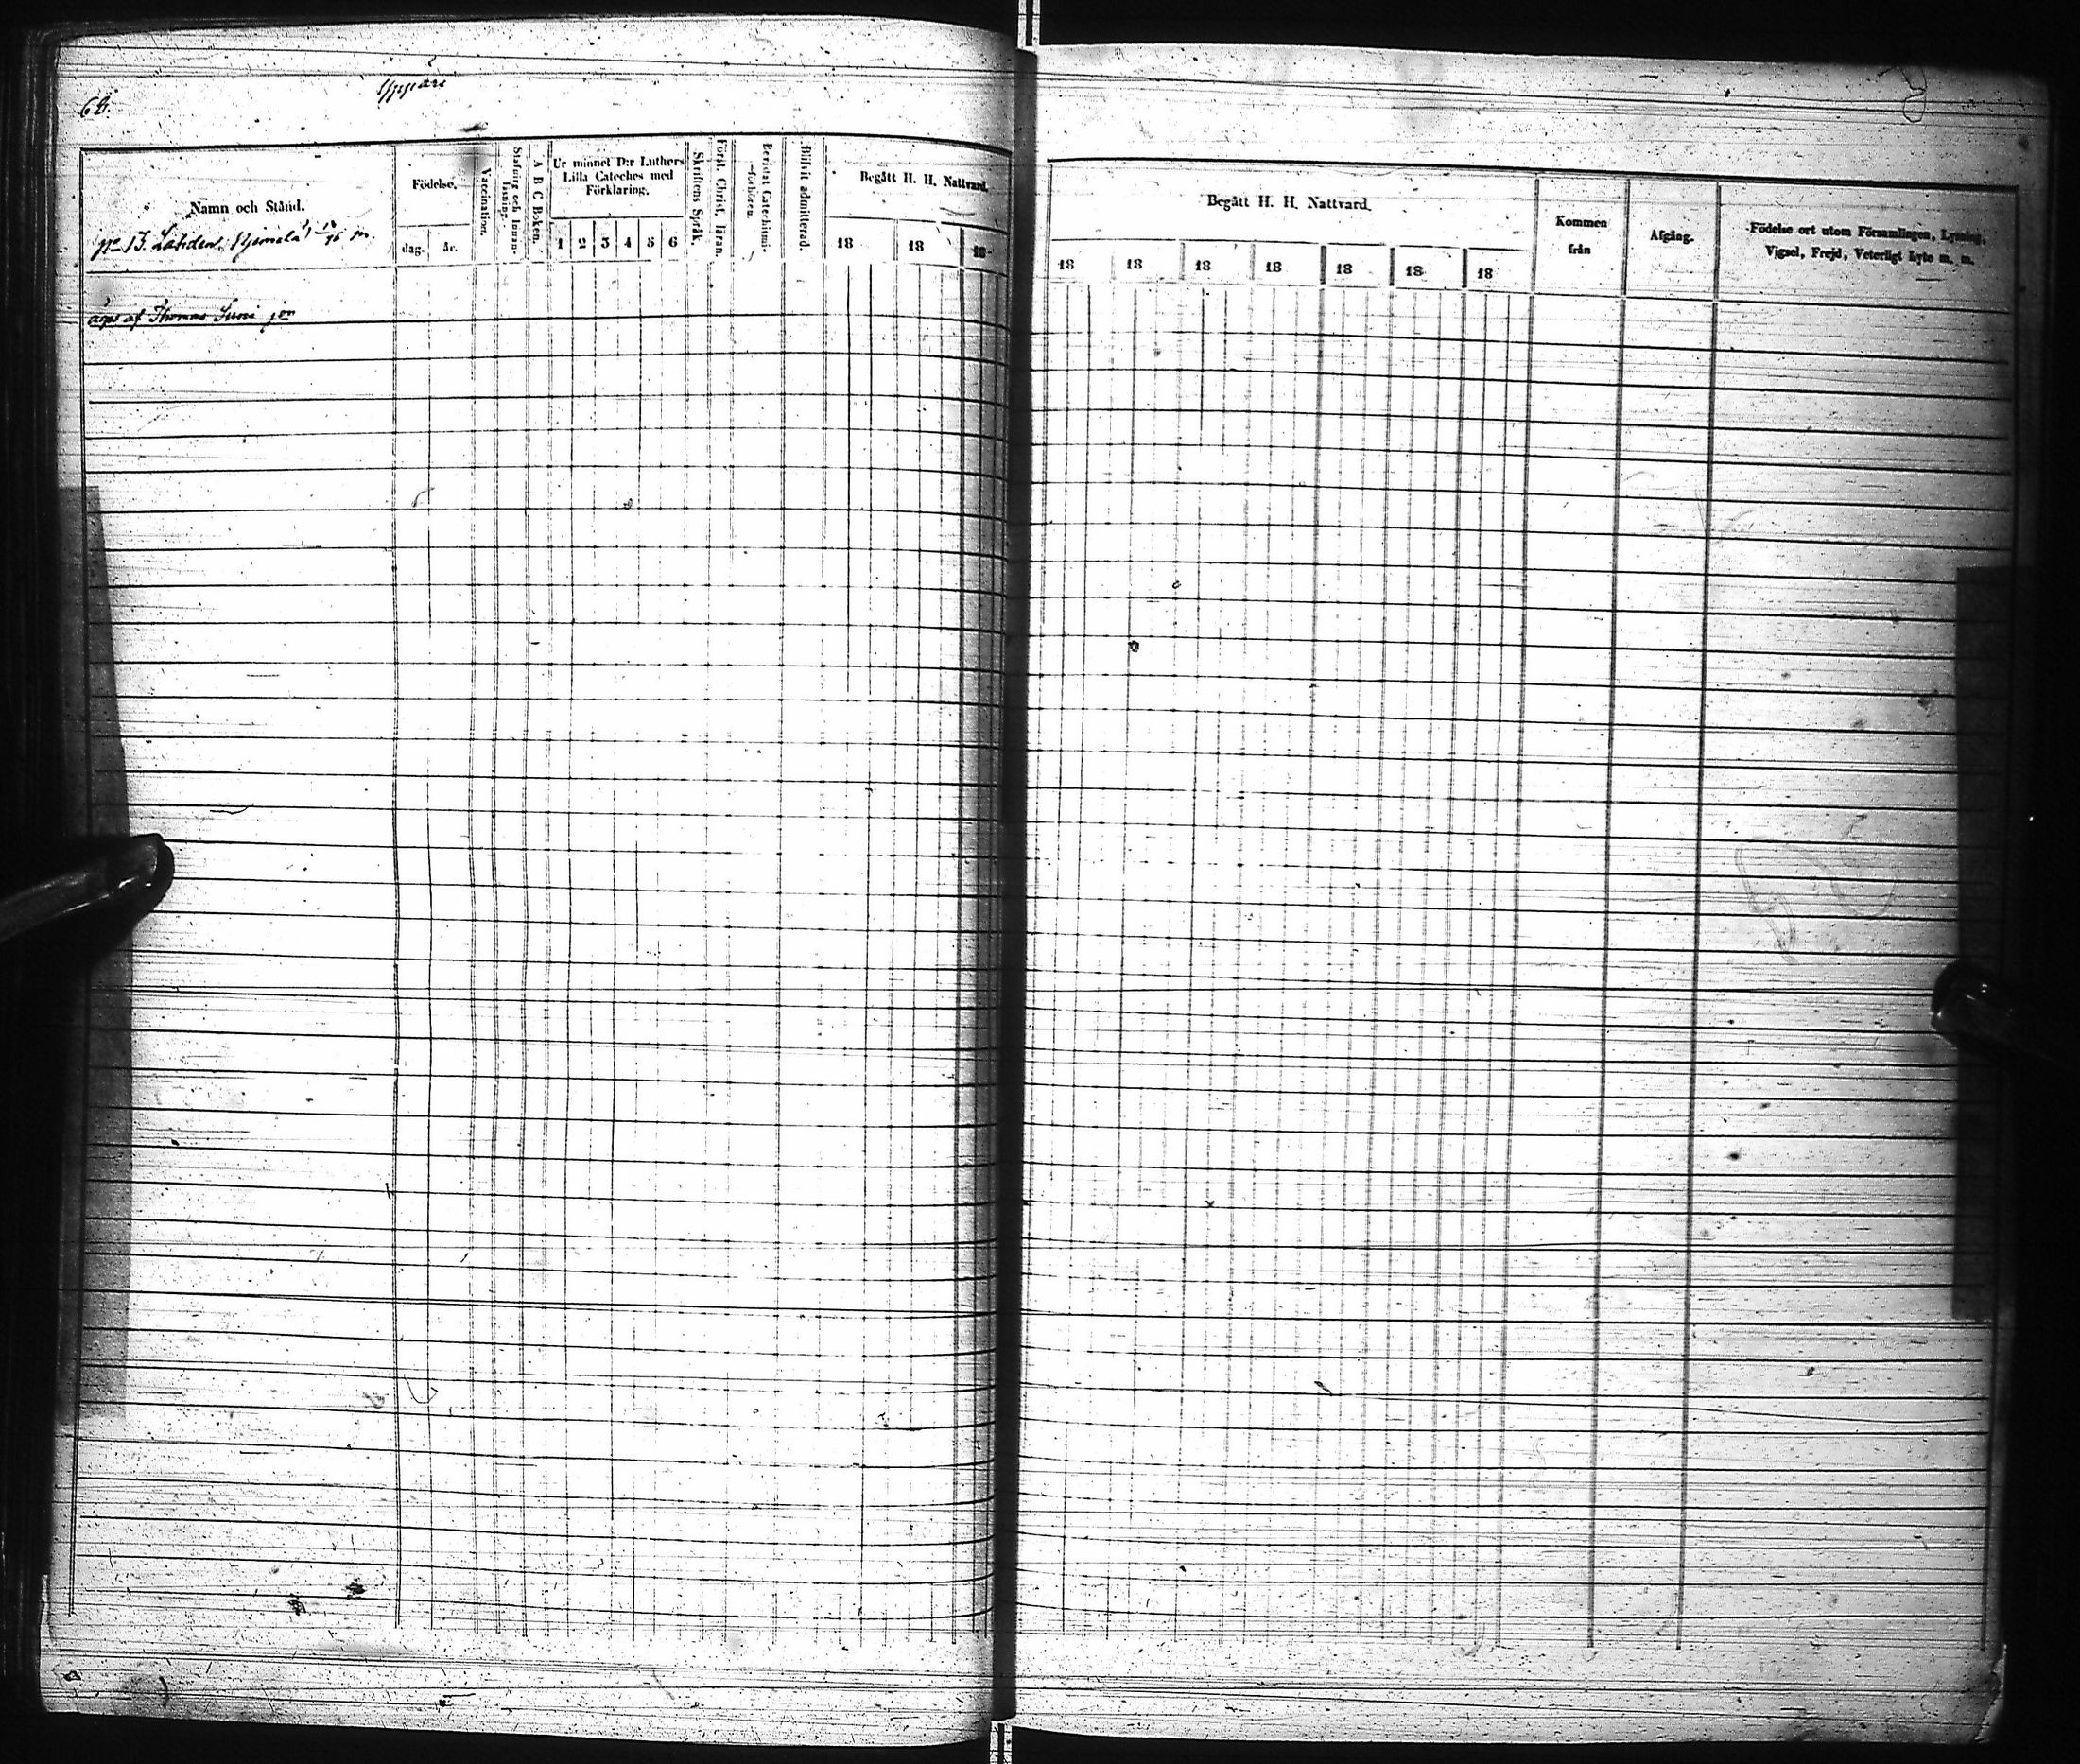 64.
Namn och Stånd.
Födelse.
dag.
år.
Vaccinationer.
Stafning och Innan-läsning.
A B C Boken.
Ur minnet D:r Luthers
Lilla Cateches med
Förklaring.
1 2 3 4 5 6
Skriftens Språk.
Först. Christ. läran.
Bevistat Catechismi-förhören.
Blifvit admitterad.
Begått H. H. Nattvard.
18 18 18
äges af Thomas Suni jor
Begått H. H. Nattvard.
18 18 18 18 18 18 18
Kommen
från
Afgång.
Födelse ort utom Församlingen, Lysning,
Vigsel, Frejd, Veterligt Lyte m. m.